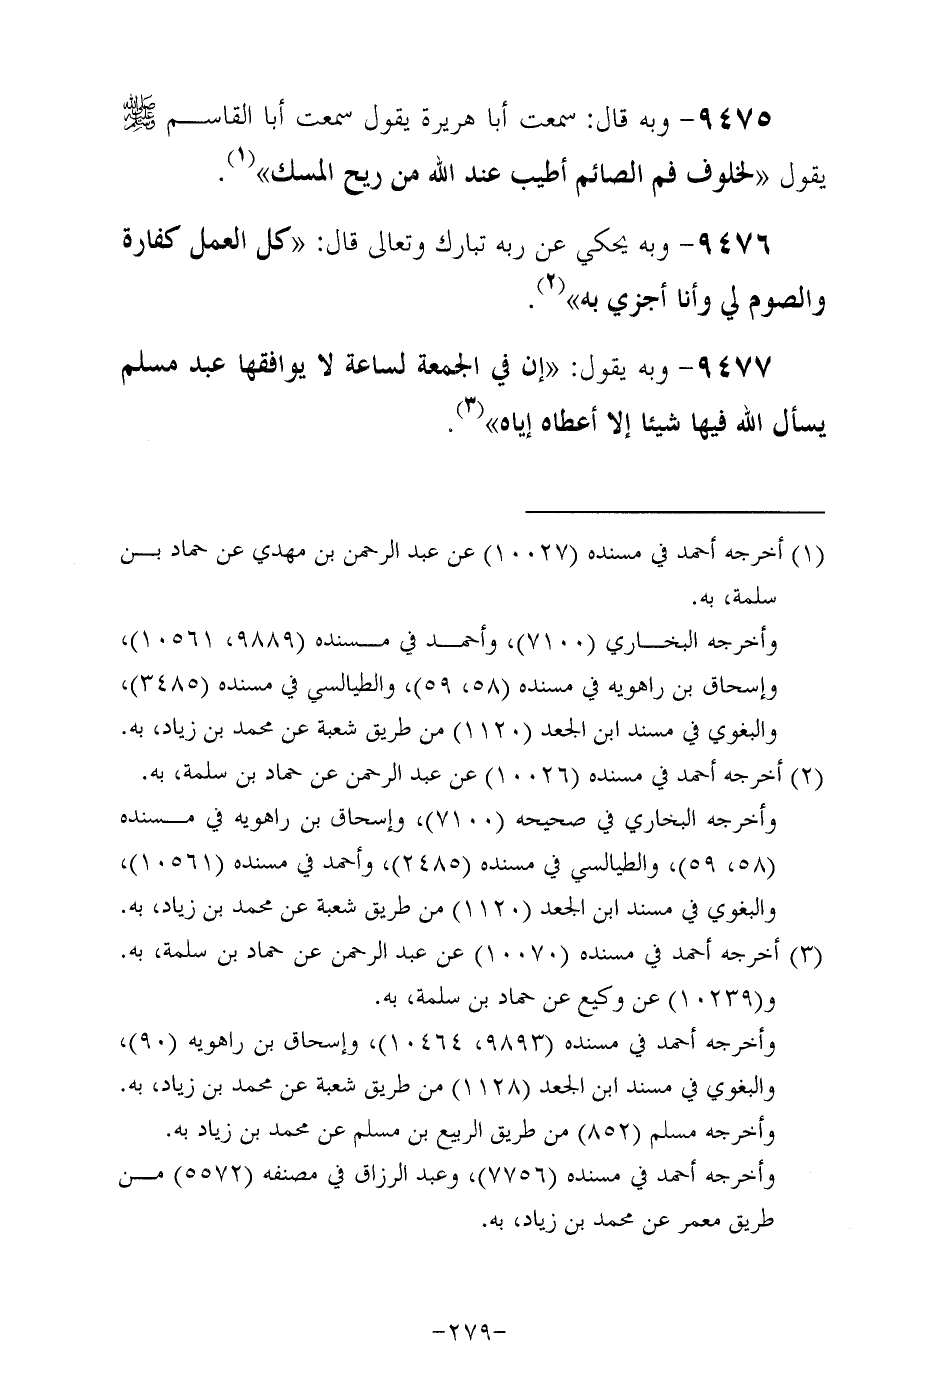 ٩٤٧٥- وبه قال: سمعت أبا هريرة يقول سمعت أبا القاســـم ﷺ
يقول «لخلوف فم الصائم أطيب عند الله من ريح المسك»(١).
٩٤٧٦- وبه يحكي عن ربه تبارك وتعالى قال: «كل العمل كفارة
والصوم لي وأنا أجزي به»(٢).
٩٤٧٧- وبه يقول: «إن في الجمعة لساعة لا يوافقها عبد مسلم
يسأل الله فيها شيئا إلا أعطاه إياه»(٣).
(١) أخرجه أحمد في مسنده (١٠٠٢٧) عن عبد الرحمن بن مهدي عن حماد بــن
سلمة، به.
وأخرجه البخـــاري (٧١٠٠)، وأحمـــد في مـــسنده (٩٨٨٩، ١٠٥٦١)،
وإسحاق بن راهويه في مسنده (٥٨، ٥٩)، والطيالسي في مسنده (٣٤٨٥)،
والبغوي في مسند ابن الجعد (١١٢٠) من طريق شعبة عن محمد بن زياد، به.
(٢) أخرجه أحمد في مسنده (١٠٠٢٦) عن عبد الرحمن عن حماد بن سلمة، به.
وأخرجه البخاري في صحيحه (٧١٠٠)، وإسحاق بن راهويه في مـــسنده
(٥٨، ٥٩)، والطيالسي في مسنده (٢٤٨٥)، وأحمد في مسنده (١٠٥٦١)،
والبغوي في مسند ابن الجعد (١١٢٠) من طريق شعبة عن محمد بن زياد، به.
(٣) أخرجه أحمد في مسنده (١٠٠٧٠) عن عبد الرحمن عن حماد بن سلمة، به.
و(١٠٢٣٩) عن وكيع عن حماد بن سلمة، به.
وأخرجه أحمد في مسنده (٩٨٩٣، ١٠٤٦٤)، وإسحاق بن راهويه (٩٠)،
والبغوي في مسند ابن الجعد (١١٢٨) من طريق شعبة عن محمد بن زياد، به.
وأخرجه مسلم (٨٥٢) من طريق الربيع بن مسلم عن محمد بن زياد به.
وأخرجه أحمد في مسنده (٧٧٥٦)، وعبد الرزاق في مصنفه (٥٥٧٢) مـــن
طريق معمر عن محمد بن زياد، به.
-٢٧٩-